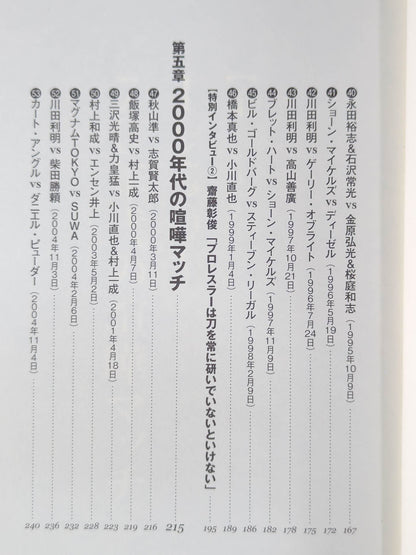 ㊵永田裕志&石沢常光 vs 金原弘光&桜庭和志(1995年10月9日) 167
㊶ショーン・マイケルズ vs ディーゼル(1996年5月19日) 172
㊷川田利明 vs ゲーリー・オブライト(1996年7月24日) 175
㊸川田利明 vs 高山善廣(1997年10月21日) 178
㊹ブレット・ハート vs ショーン・マイケルズ(1997年11月9日) 182
㊺ビル・ゴールドバーグ vs スティーブン・リーガル(1998年2月9日) 186
㊻橋本真也 vs 小川直也(1999年1月4日) 189
[特別インタビュー②] 齋藤彰俊「プロレスラーは刀を常に研いでいないといけない」 195
第五章 2000年代の喧嘩マッチ 215
㊼秋山準 vs 志賀賢太郎(2000年3月11日) 216
㊽飯塚高史 vs 村上一成(2000年4月7日) 219
㊾三沢光晴&力皇猛 vs 小川直也&村上一成(2001年4月18日) 223
㊿村上和成 vs エンセン井上(2003年5月2日) 228
51マグナムTOKYO vs SUWA(2004年2月6日) 232
52川田利明 vs 柴田勝頼(2004年11月3日) 236
53カート・アングル vs ダニエル・ピューダー(2004年11月4日) 240